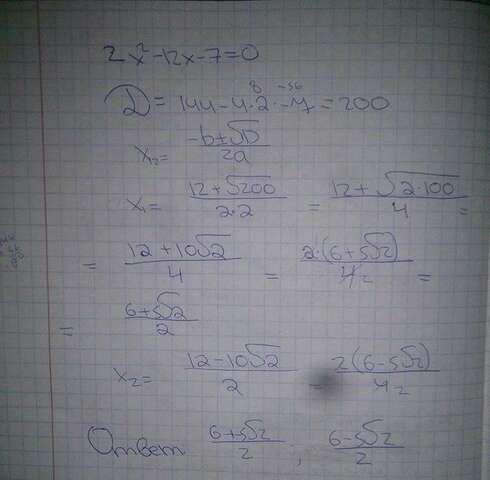 2x²-12x-7=0
D=144-4·2·-7=200
8 -56
x₂= -b±√D/2a
x₁= 12+√200/2·2 = 12+√2·100/4 =
= 12+10√2/4 = 2·(6+5√2)/4 2 =
= 6+5√2/2
x₂= 12-10√2/2 = 2(6-5√2)/4 2
Ответ 6+5√2/2; 6-5√2/2